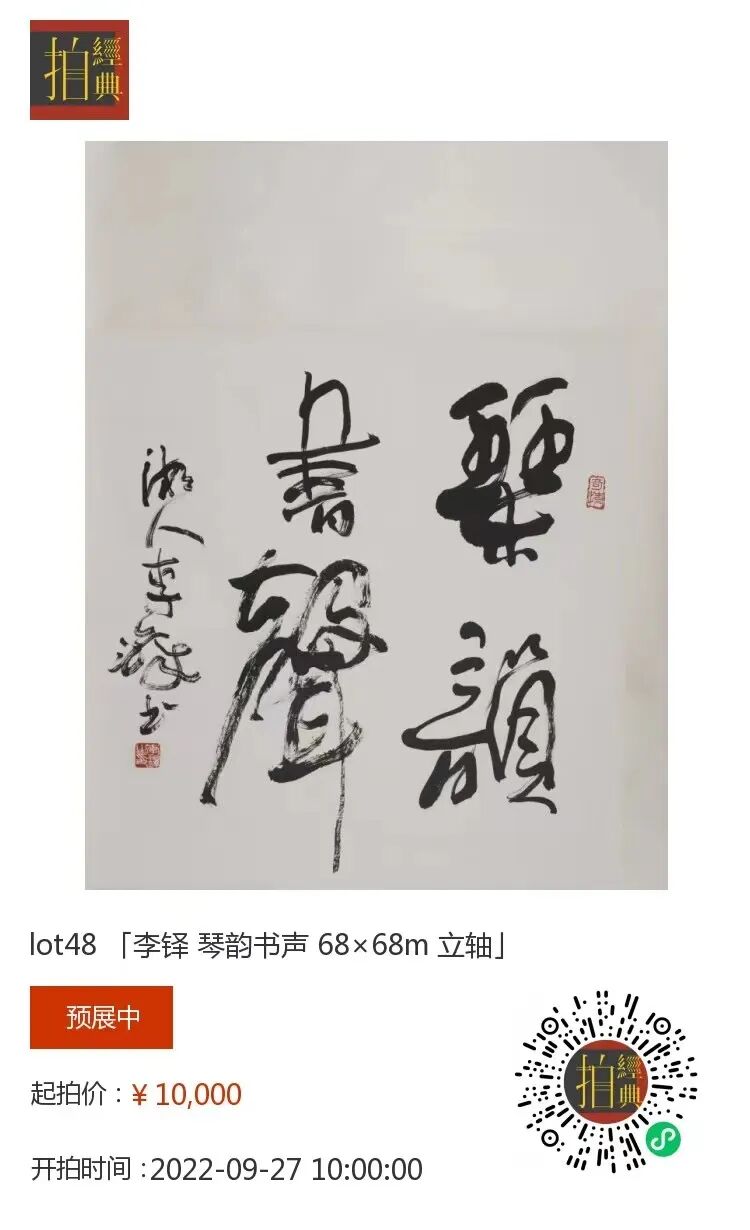 拍
經典
琴韻
書聲
湘人李鐸书
lot48 「李铎 琴韵书声 68×68m 立轴」
预展中
起拍价：¥ 10,000
开拍时间 :2022-09-27 10:00:00
拍
經典